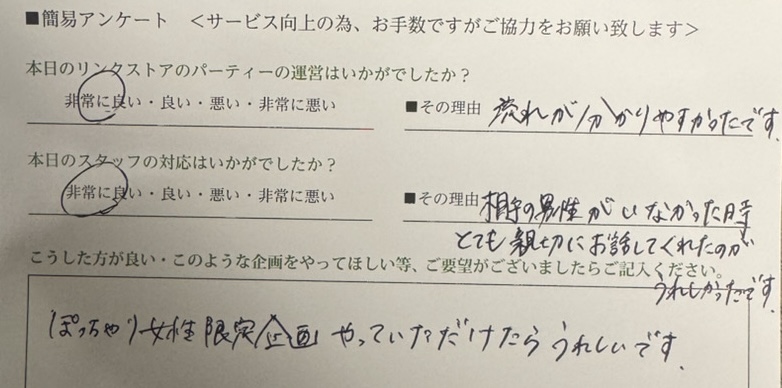 ■簡易アンケート ＜サービス向上の為、お手数ですがご協力をお願い致します＞
本日のリンクストアのパーティーの運営はいかがでしたか？
非常に良い・良い・悪い・非常に悪い ■その理由 流れが分かりやすかったです.
本日のスタッフの対応はいかがでしたか？
非常に良い・良い・悪い・非常に悪い ■その理由 相手の男性がいなかった時
とても親切にお話してくれたのが
こうした方が良い・このような企画をやってほしい等、ご要望がございましたらご記入ください。
うれしかったです.
ぽっちゃり女性限定企画やっていただけたらうれしいです.